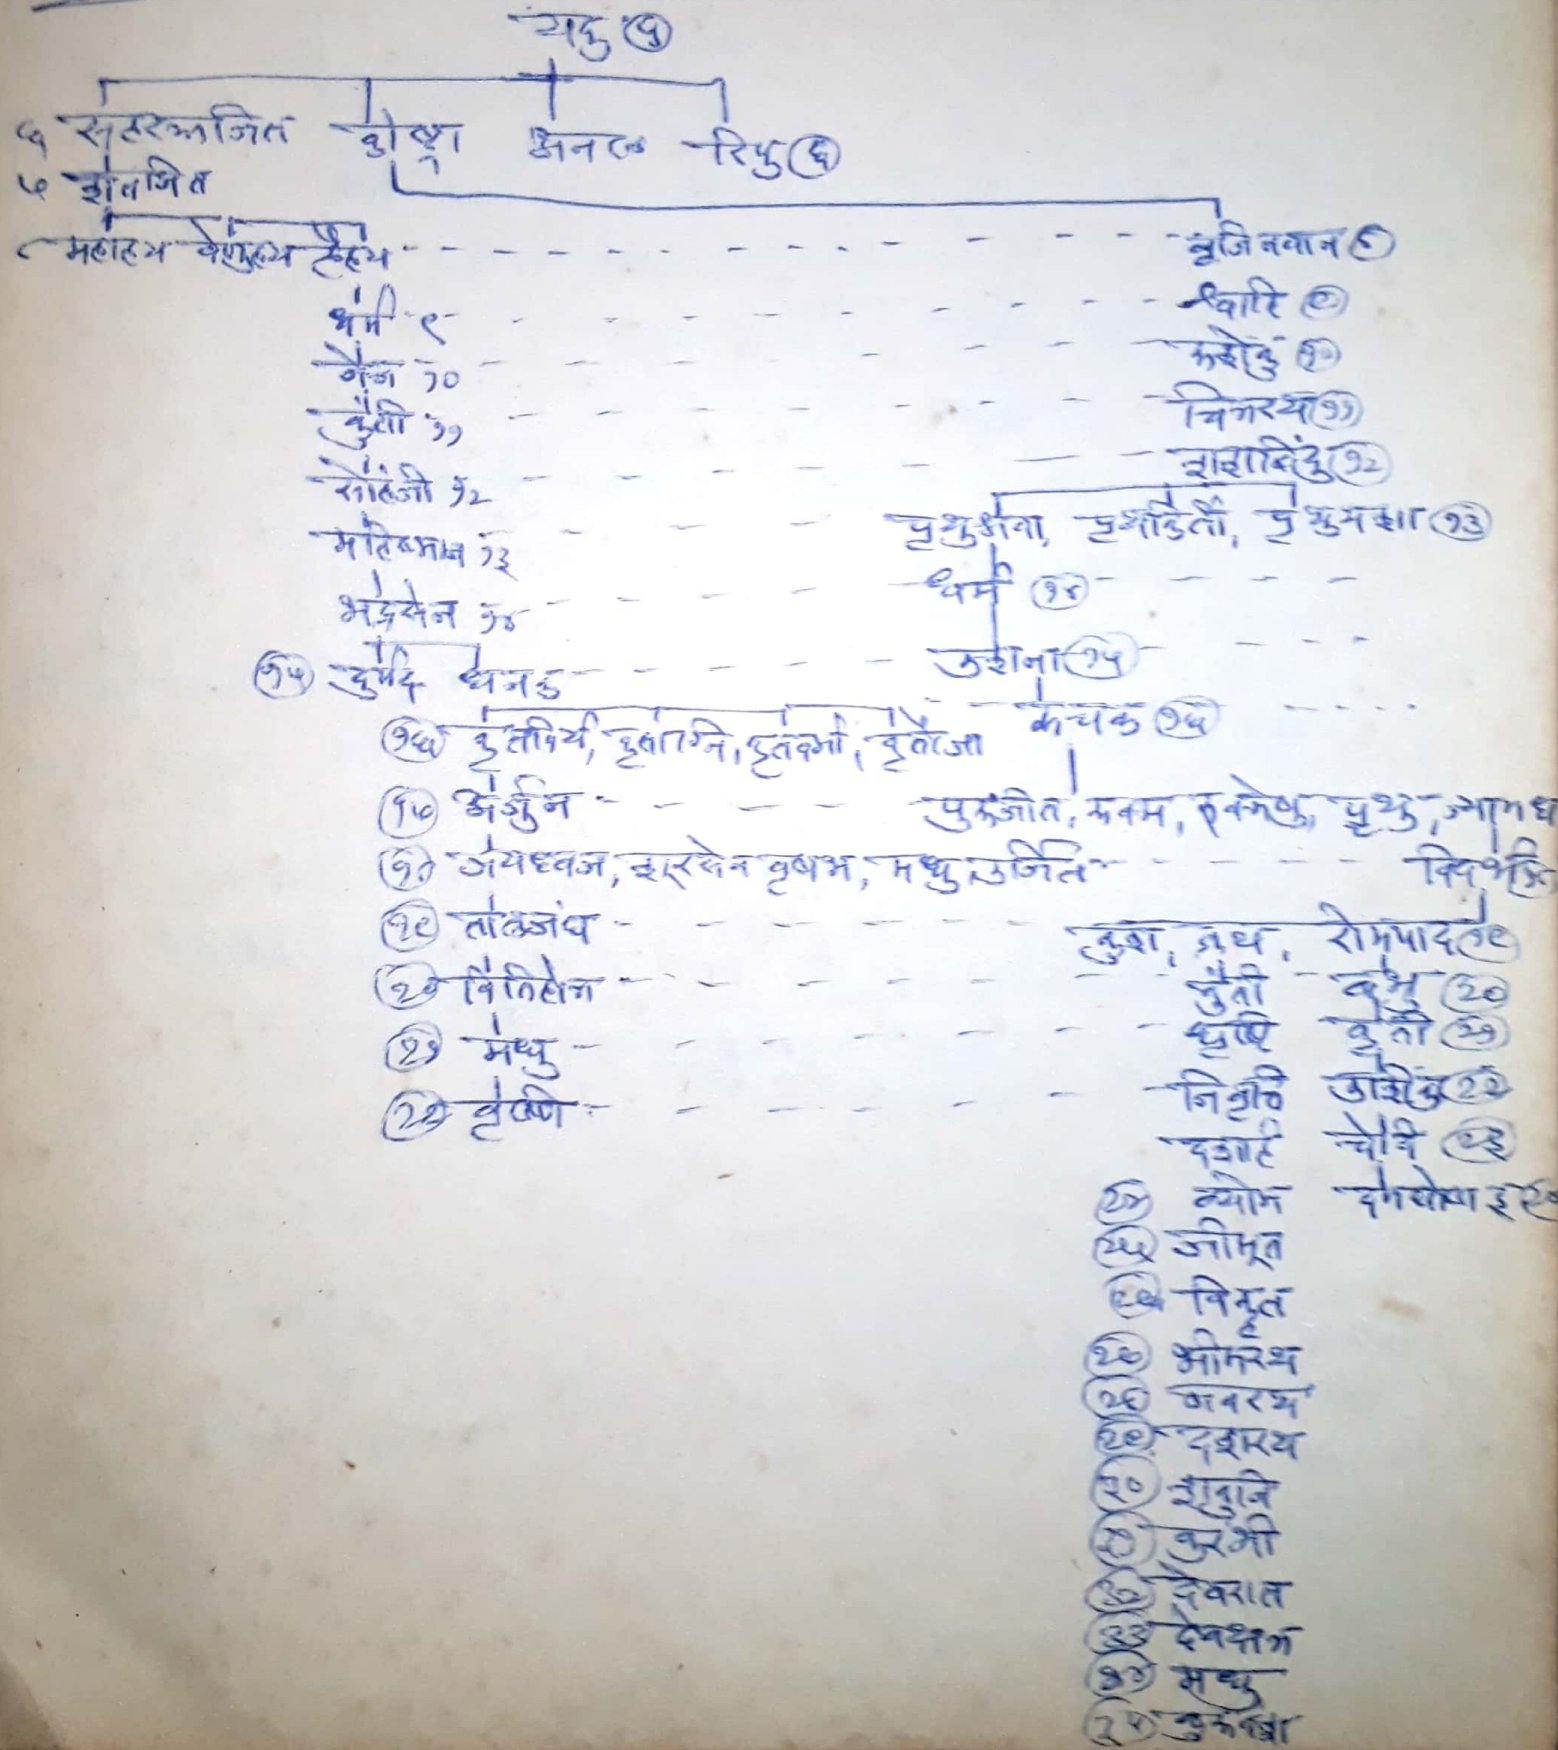 यदु ५
६ सहस्त्रजित क्रोष्टा अनल रिपु ६
७ शतजित
८ महाहय वेणुहय हैहय वृजिनवान
धर्म ९ श्वाहि ९
नेत्र १० रुशेकु १०
कुंती ११ चित्ररथ ११
सोहंजी १२ शशबिंदु १२
महिष्मान १३ पृथुश्रवा, पृथुकिर्ती, पृथुयशा १३
भद्रसेन १४ धर्म १४
१५ दुर्मद धनक उशना १५
१६ कृतविर्य, कृताग्नि, कृतवर्मा, कृतौजा रुचक १६
१७ अर्जुन पुरुजीत, रुक्म, रुक्मेषु, पृथु, ज्यामघ
१८ जयध्वज, शूरसेन वृषभ, मधु, उर्जित विदर्भ १८
१९ तालजंघ कुश, क्रथ, रोमपाद १९
२० वितिहोत्र कुंती बभ्रु २०
२१ मधु धृष्टि कृती २१
२२ वृष्णि निवृत्ति उशिक २२
दशार्ह चेदि २३
२४ व्योम दमघोष
२५ जीमूत
विकृत
२७ भीमरथ
२८ नवरथ
२९ दशरथ
३० शकुनि
३१ कुरंभी
३२ देवरात
३३ देवक्षत्र
३४ मधु
३५ कुरुवशा